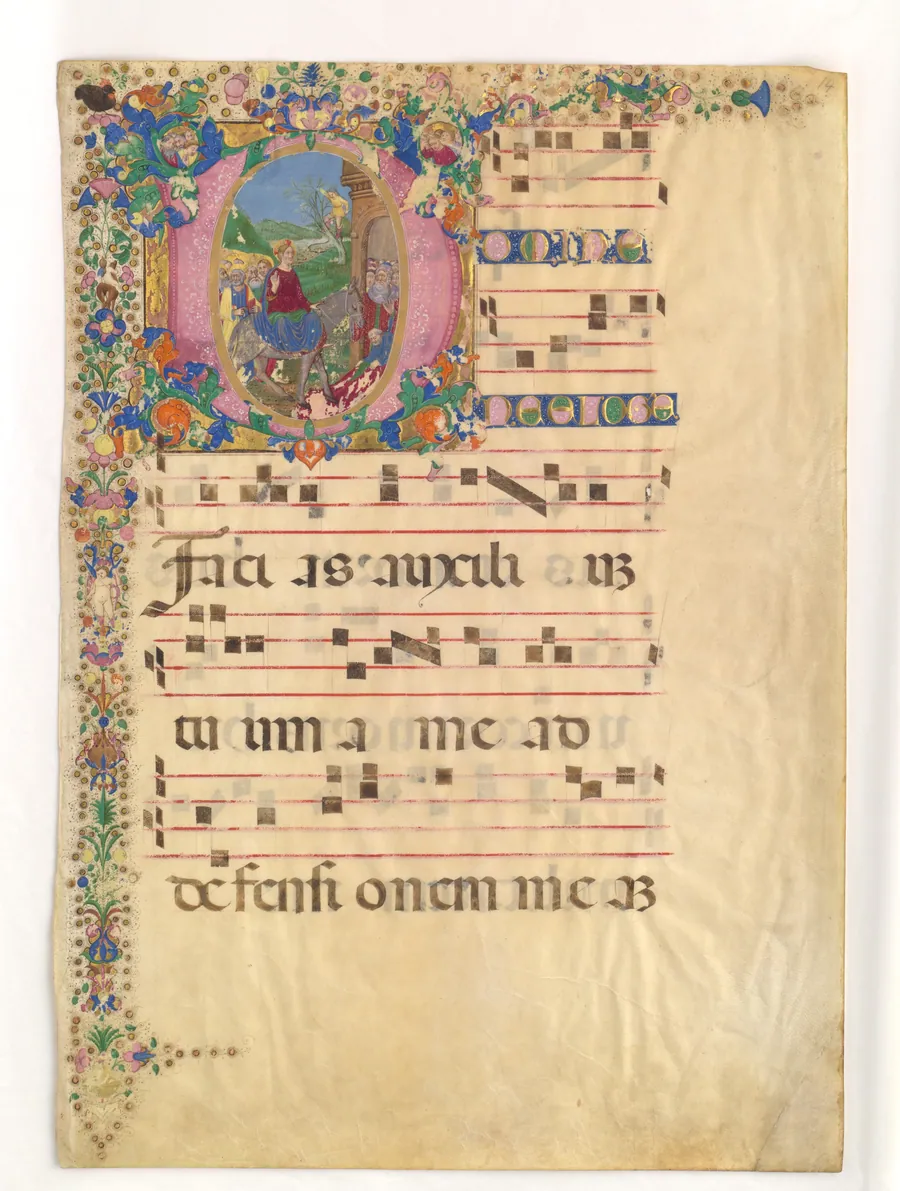 DOMINE
NELONGE
Faci as auxili uꝫ
tu um a me ad
defensi onem me aꝫ